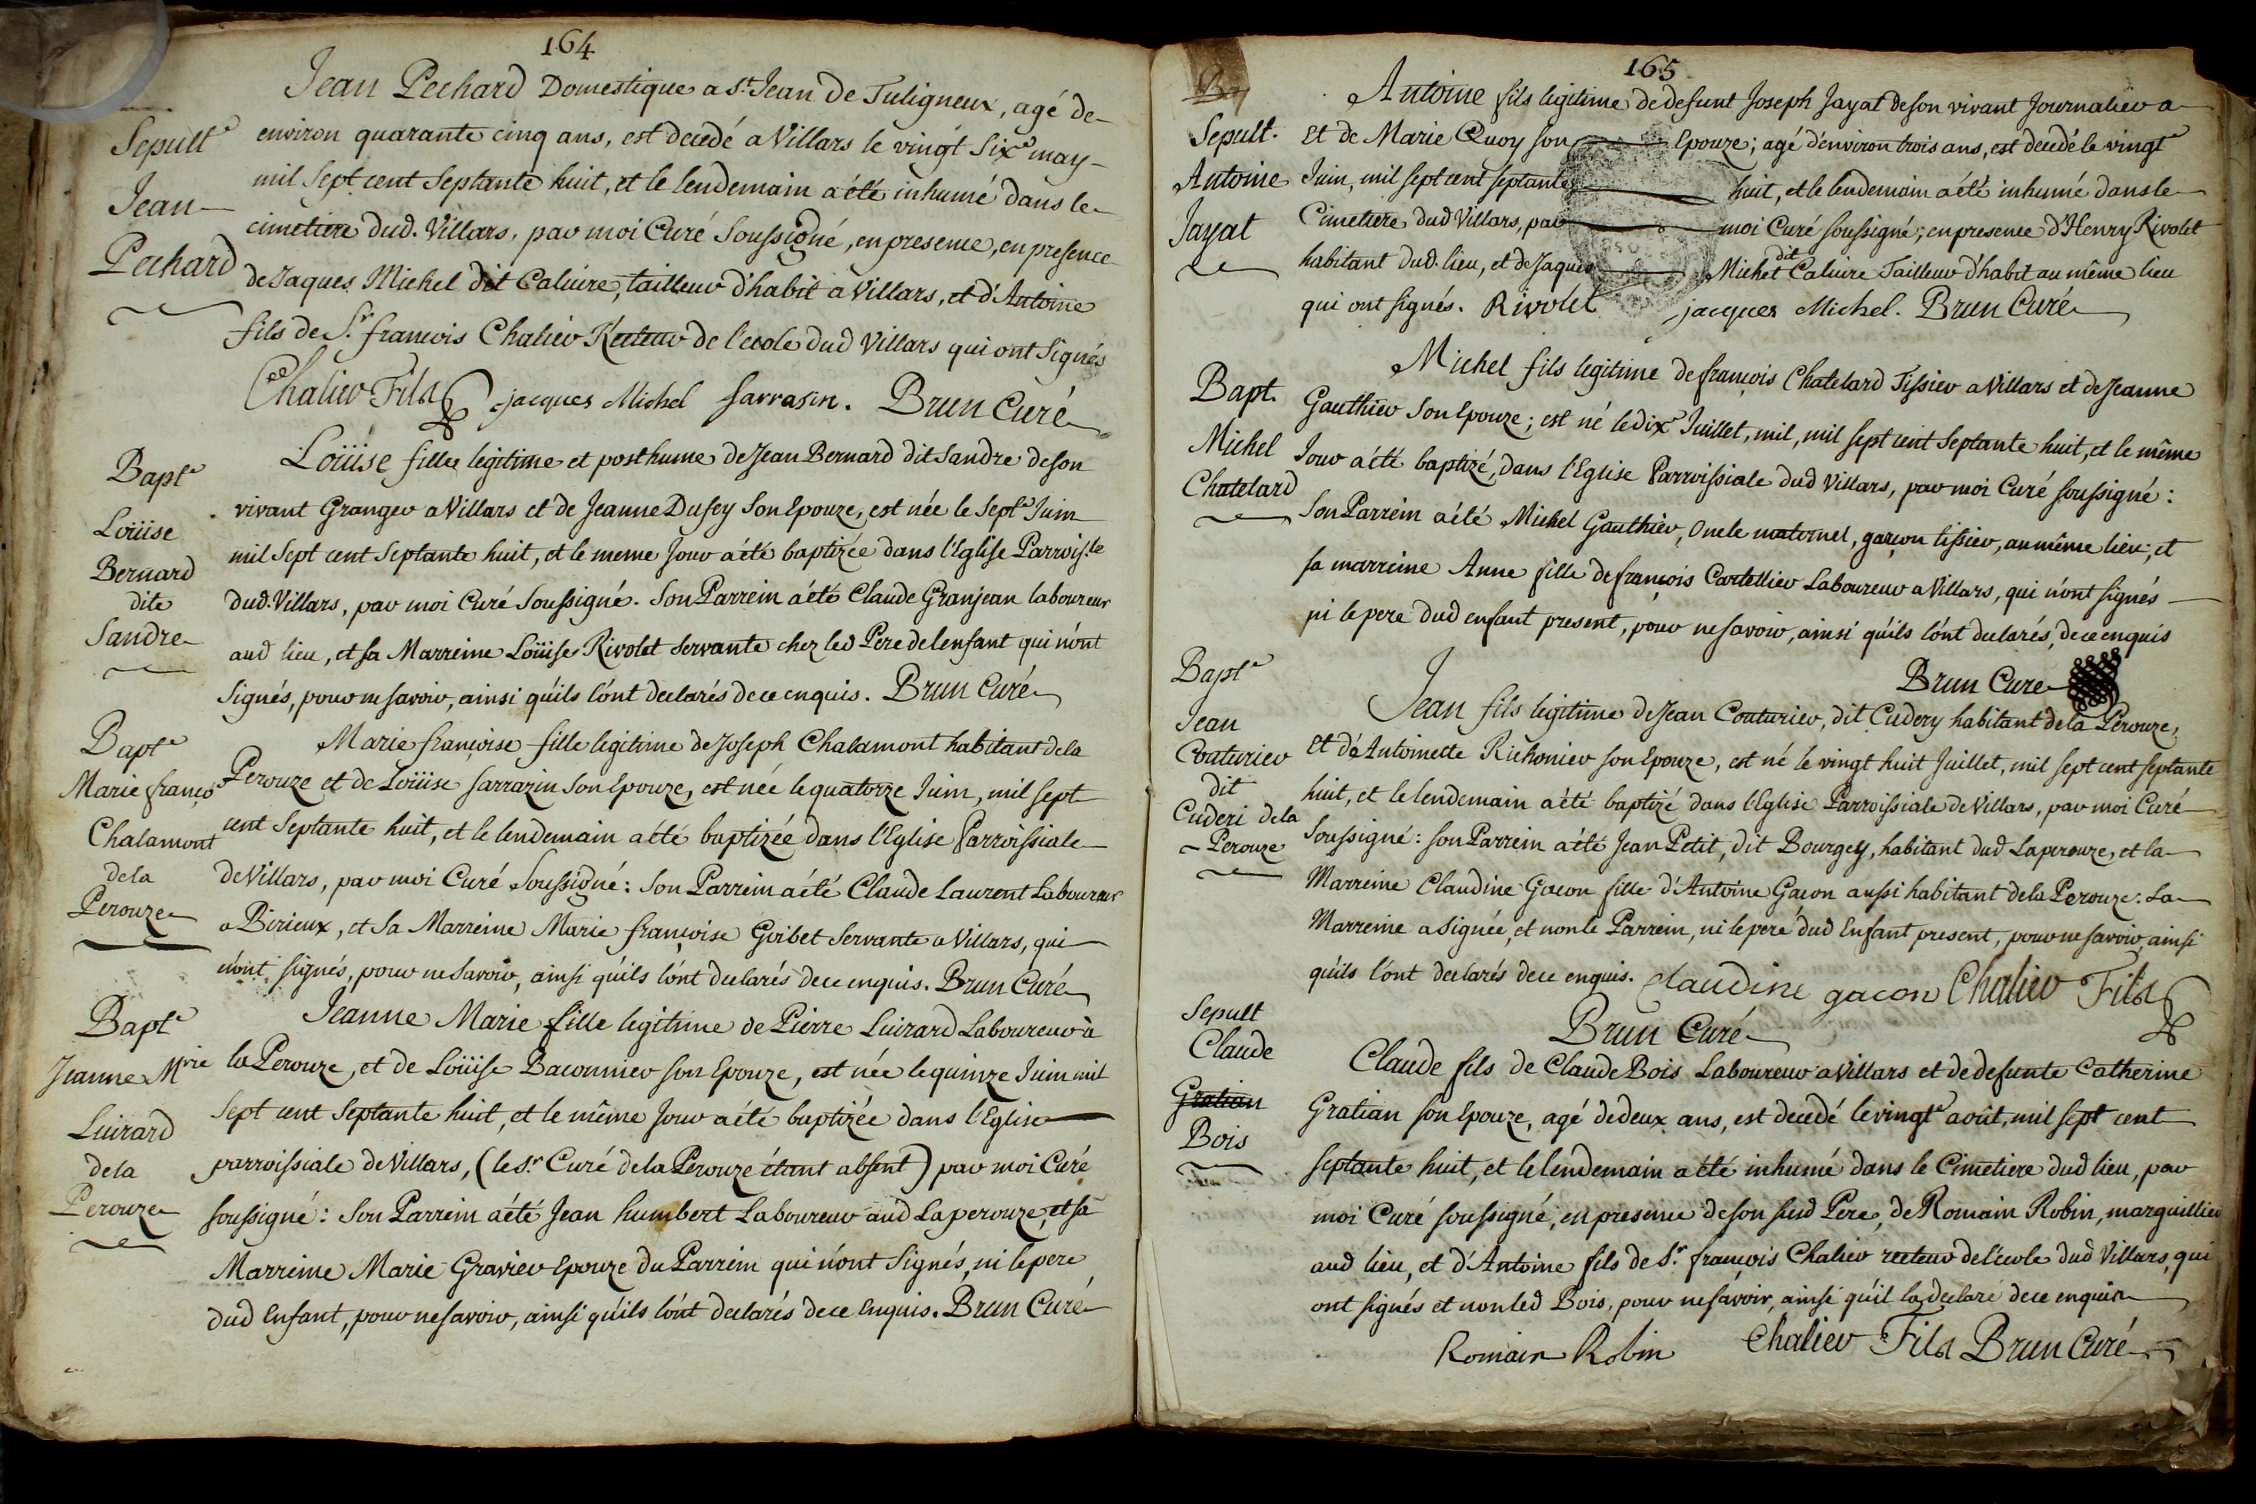 164
Sepult.e
Jean
Pechard
Jean Pechard Domestique a St. Jean de Tuligneux, agé de
environ quarante cinq ans, est decedé a Villars le vingt Six.e may
mil Sept cent Septante huit, et le lendemain a été inhumé dans le
cimetiere dud. Villars, par moi Curé Soussigné, en presence, en presence
de Jaques Michel dit Caluire, tailleur d'habit a Villars, et d'Antoine
fils de Sr. françois Chalier Recteur de l'ecole dud Villars qui ont Signés
Chalier Fils jacques Michel Sarrasin. Brun Curé
Bapt.e
Loüise
Bernard
dite
Sandre
Loüise fille legitime et posthume de Jean Bernard dit Sandre de son
vivant Granger a Villars et de Jeanne Dufey Son Epouze, est née le Sept.e Juin
mil Sept cent Septante huit, et le meme Jour a été baptizée dans l'Eglise Parrois.le
dud. Villars, par moi Curé Soussigné. Son Parrein a été Claude Granjean laboureur
aud lieu, et sa Marreine Loüise Rivolet Servante chez led Pere de lenfant qui n'ont
Signés, pour ne savoir, ainsi qu'ils l'ont declarés de ce enquis. Brun Curé
Bapt.e
Marie franço.
Chalamont
de la
Perouze
Marie françoise fille legitime de Joseph Chalamont habitant de la
Perouze et de Loüise Sarrazin Son Epouze, est née le quatorze Juin, mil sept
cent Septante huit, et le lendemain a été baptizée dans l'Eglise Parroissiale
de Villars, par moi Curé Soussigné: Son Parrein a été Claude Laurent Laboureur
a Birieux, et Sa Marreine Marie françoise Goibet Servante a Villars, qui
n'ont signés, pour ne Savoir, ainsi qu'ils l'ont declarés de ce enquis. Brun Curé
Bapt.e
Jeanne M.rie
Luirard
de la
Perouze
Jeanne Marie fille legitime de Pierre Luirard Laboureur à
la Perouze, et de Loüise Baconnier son Epouze, est née le quinze Juin mil
Sept cent Septante huit, et le même Jour a été baptizée dans l'Eglise
parroissiale de Villars, (le Sr. Curé de la Perouze étant absent) par moi Curé
soussigné: Son Parrein a été Jean humbert Laboureur aud Laperouze, et sa
Marreine Marie Gravier Epouze du Parrein qui n'ont Signés, ni le pere
dud Enfant, pour ne savoir, ainsi qu'ils l'ont declarés de ce Enquis. Brun Curé
165
Sepult.
Antoine
Jayat
Antoine fils legitime de defunt Joseph Jayat de son vivant Journalier a
Et de Marie Quoy son Epouze; agé d'environ trois ans, est decedé le vingt.e
Juin, mil sept cent septante huit, et le lendemain a été inhumé dans le
Cimetiere dud Villars, par moi Curé soussigné; en presence d'Henry Rivolet
habitant dud. lieu, et de Jaques Michel dit Caluire Tailleur d'habit au même lieu
qui ont signés. Rivolet jacques Michel. Brun Curé
Bapt.
Michel
Chatelard
Michel fils legitime de françois Chatelard Tissier a Villars et de Jeanne
Gauthier Son Epouze; est né le dix.e Juillet, mil, mil sept cent Septante huit, et le même
Jour a été baptizé, dans l'Eglise Parroissiale dud Villars, par moi Curé soussigné:
Son Parrein a été Michel Gauthier, Oncle maternel, garçon tissier, au même lieu; et
sa marreine Anne fille de françois Cartellier Laboureur a Villars, qui n'ont signés
ni le pere dud enfant present, pour ne savoir, ainsi qu'ils l'ont declarés, de ce enquis
Brun Curé
Bapt.e
Jean
Couturier
dit
Cuderi de la
Perouze
Jean fils legitime de Jean Couturier, dit Cudery habitant de la Perouze,
et d'Antoinette Richonier son Epouze, est né le vingt huit Juillet, mil sept cent septante
huit, et le lendemain a été baptizé dans l'Eglise Parroissiale de Villars, par moi Curé
Soussigné: son Parrein a été Jean Petit, dit Bourgey, habitant dud Laperouze, et la
Marreine Claudine Gacon fille d'Antoine Gacon aussi habitant de la Perouze: La
Marreine a signée, et non le Parrein, ni le pere dud Enfant present, pour ne savoir, ainsi
qu'ils l'ont declarés de ce enquis. claudine gacon Chalier Fils
Brun Curé
Sepult
Claude
Gratian
Bois
Claude fils de Claude Bois Laboureur a Villars et de defunte Catherine
Gratian son Epouze, agé de deux ans, est decedé le vingt.e août, mil sept cent
septante huit, et le lendemain a été inhumé dans le Cimetiere dud lieu, par
moi Curé soussigné, en presence de son susd Pere, de Romain Robin, marguillier
aud lieu, et d'Antoine fils de Sr. françois Chalier recteur de l'ecole dud Villars, qui
ont signés et non led Bois, pour ne savoir, ainsi qu'il la declaré de ce enquis
Romain Robin Chalier Fils Brun Curé